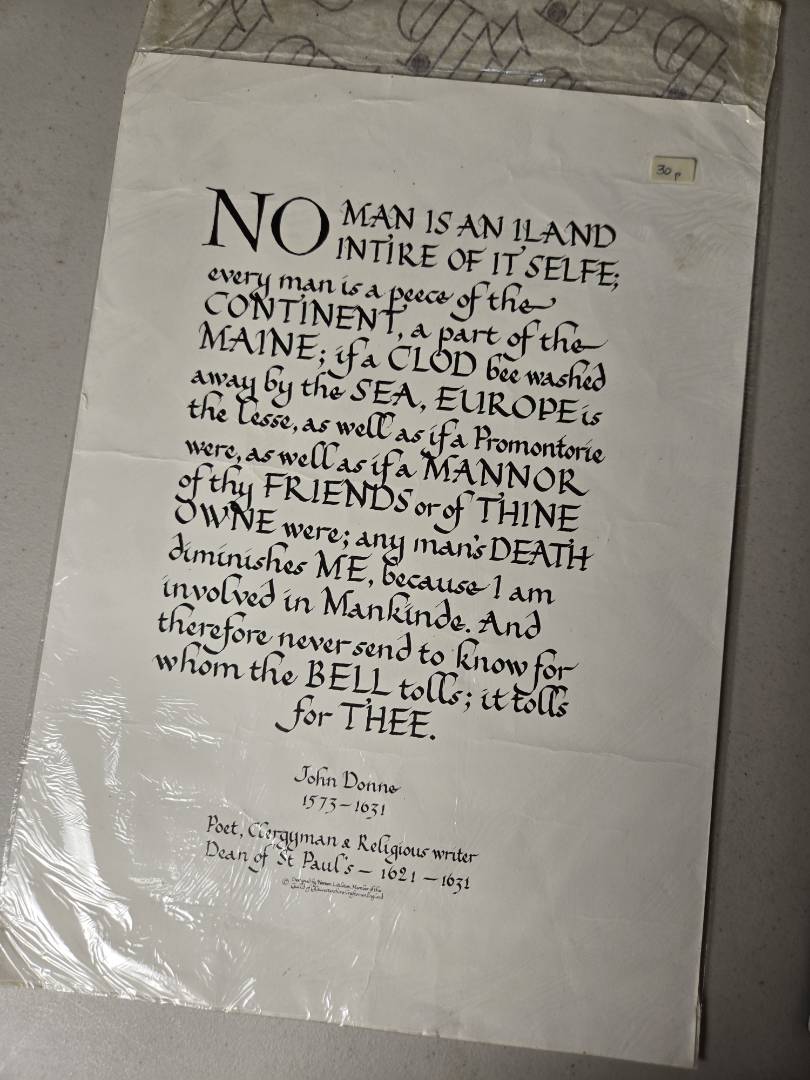 30p
NO MAN IS AN ILAND
INTIRE OF IT SELFE;
every man is a peece of the
CONTINENT, a part of the
MAINE; if a CLOD bee washed
away by the SEA, EUROPE is
the lesse, as well as if a Promontorie
were, as well as if a MANNOR
of thy FRIENDS or of THINE
OWNE were; any man's DEATH
diminishes ME, because I am
involved in Mankinde. And
therefore never send to know for
whom the BELL tolls; it tolls
for THEE.
John Donne
1573-1631
Poet, Clergyman & Religious writer
Dean of St Paul's - 1621 - 1631
© Designed by Member of the
Guild of Gloucestershire Craftsmen England